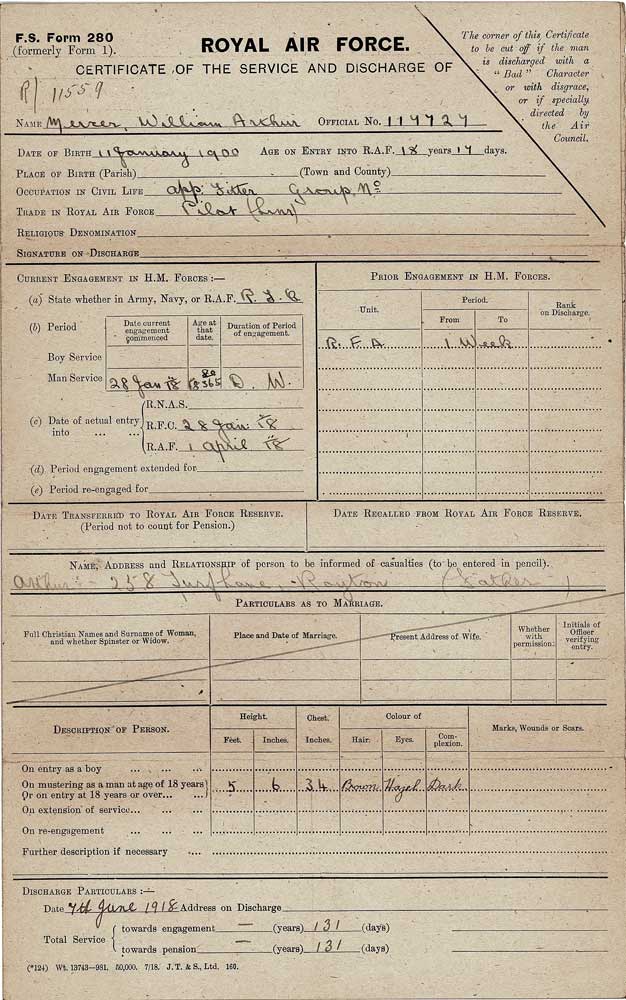 F.S. Form 280
(formerly Form 1).
ROYAL AIR FORCE.
CERTIFICATE OF THE SERVICE AND DISCHARGE OF
The corner of this Certificate
to be cut off if the man
is discharged with a
"Bad" Character
or with disgrace,
or if specially
directed by
the Air
Council.
R/ 11559
NAME Mercer, William Arthur OFFICIAL No. 117727
DATE OF BIRTH 11 January 1900 AGE ON ENTRY INTO R.A.F. 18 years 17 days.
PLACE OF BIRTH (Parish) (Town and County)
OCCUPATION IN CIVIL LIFE app: Fitter Group No
TRADE IN ROYAL AIR FORCE Pilot
RELIGIOUS DENOMINATION
SIGNATURE ON DISCHARGE
CURRENT ENGAGEMENT IN H.M. FORCES :—
(a) State whether in Army, Navy, or R.A.F.
(b) Period
Date current engagement commenced
Age at that date.
Duration of Period of engagement.
Boy Service
Man Service 28 Jan 18 18 365 D. W.
(c) Date of actual entry into ... ...
R.N.A.S.
R.F.C. 28 Jan: 18
R.A.F. 1 April 18
(d) Period engagement extended for
(e) Period re-engaged for
PRIOR ENGAGEMENT IN H.M. FORCES.
Unit.
Period.
From To
Rank on Discharge.
R. F. A. 1 Week
DATE TRANSFERRED TO ROYAL AIR FORCE RESERVE.
(Period not to count for Pension.)
DATE RECALLED FROM ROYAL AIR FORCE RESERVE.
NAME, ADDRESS AND RELATIONSHIP of person to be informed of casualties (to be entered in pencil).
Arthur :- 258 Royton (Father)
PARTICULARS AS TO MARRIAGE.
Full Christian Names and Surname of Woman, and whether Spinster or Widow.
Place and Date of Marriage.
Present Address of Wife.
Whether with permission:
Initials of Officer verifying entry.
DESCRIPTION OF PERSON.
Height. Chest. Colour of
Feet. Inches. Inches. Hair. Eyes. Complexion.
Marks, Wounds or Scars.
On entry as a boy ... ... ...
On mustering as a man at age of 18 years
Or on entry at 18 years or over... ...
5 6 34 Brown Hazel Dark
On extension of service... ... ...
On re-engagement ... ... ...
Further description if necessary ....
DISCHARGE PARTICULARS :—
Date 7th June 1918 Address on Discharge
Total Service
towards engagement — (years) 131 (days)
towards pension — (years) 131 (days)
(*124) Wt. 13743—981. 50,000. 7/18. J. T. & S., Ltd. 160.